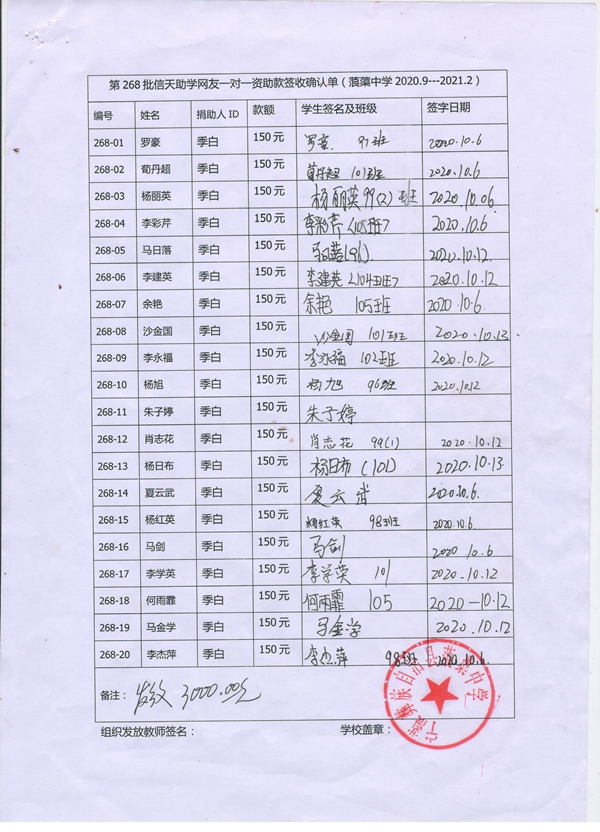 第268批信天助学网友一对一资助款签收确认单（蕻藻中学2020.9---2021.2）
编号 姓名 捐助人ID 款额 学生签名及班级 签字日期
268-01 罗豪 季白 150元 罗豪 97班 2020.10.6
268-02 荀丹超 季白 150元 荀丹超 101班 2020.10.6
268-03 杨丽英 季白 150元 杨丽英 99(2)班 2020.10.06
268-04 李彩芹 季白 150元 李彩芹<105班> 2020.10.6
268-05 马日落 季白 150元 2020.10.12
268-06 李建英 季白 150元 李建英<104班> 2020.10.12
268-07 余艳 季白 150元 余艳 105班 2020.10.6
268-08 沙金国 季白 150元 沙金国 101班 2020.10.13
268-09 李永福 季白 150元 李永福 102班 2020.10.12
268-10 杨旭 季白 150元 杨旭 96班 2020.10.12
268-11 朱子婷 季白 150元 朱子婷
268-12 肖志花 季白 150元 肖志花 99(1) 2020.10.12
268-13 杨日布 季白 150元 杨日布(101) 2020.10.13
268-14 夏云武 季白 150元 夏云武 2020.10.6.
268-15 杨红英 季白 150元 杨红英 98班 2020.10.6.
268-16 马剑 季白 150元 马剑 2020.10.6
268-17 李学英 季白 150元 李学英 101 2020.10.12
268-18 何雨霏 季白 150元 何雨霏 105 2020-10.12
268-19 马金学 季白 150元 马金学 2020.10.12
268-20 李杰萍 季白 150元 李杰萍 98班 2020.10.6.
备注： 发放 3000.00元
组织发放教师签名： 学校盖章：